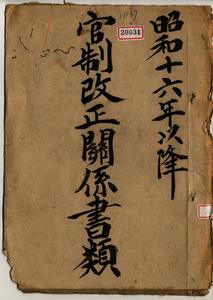 昭和十六年以降
官制改正關係書類
20031